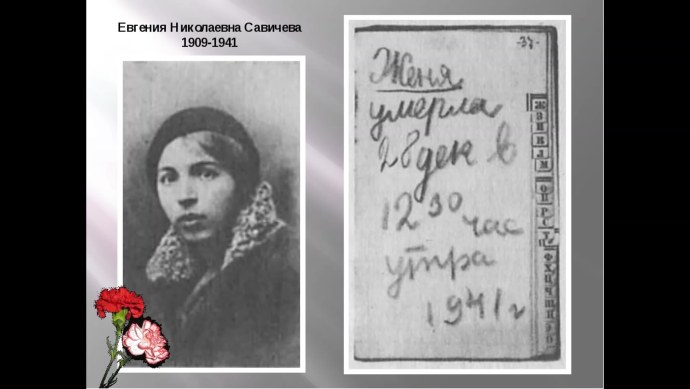 Евгения Николаевна Савичева
1909-1941
-37-
Женя
умерла
28 дек в
12 30 час
утра
1941 г